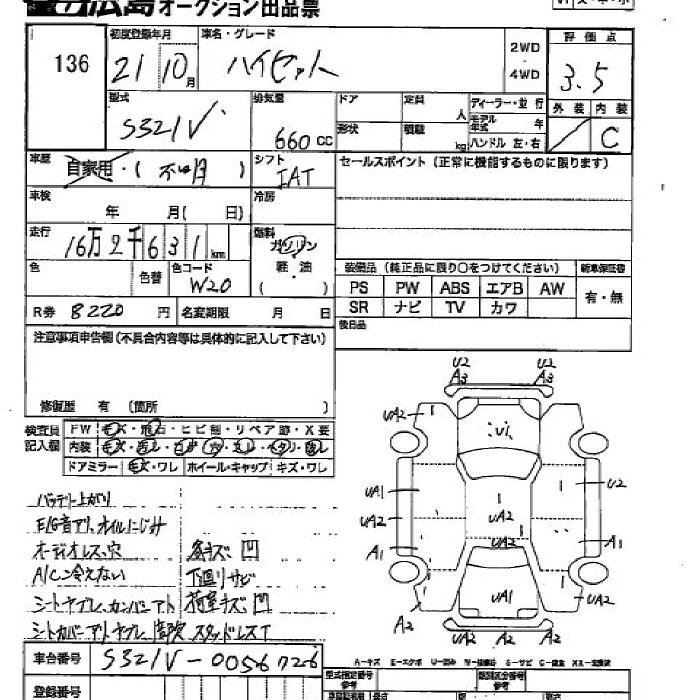 広島オークション出品票
136
初度登録年月 21 10月
車名・グレード ハイゼット
2WD
4WD
評価点 3.5
外装 内装 C
型式 S321V
排気量 660 CC
ドア 定員 人
形状 積載 kg
ディーラー・並行
モデル年式 年
ハンドル 左・右
車歴 自家用・( 不明 )
シフト IAT
セールスポイント (正常に機能するものに限ります)
車検 年 月( 日)
冷房
走行 16万2千631km
燃料 ガソリン
軽・油
( )
色 色替 色コード W20
装備品 (純正品に限り○をつけてください) 新車保証書
PS PW ABS エアB AW 有・無
SR ナビ TV カワ
R券 8220円 名変期限 月 日
後日品
注意事項申告欄(不具合内容等は具体的に記入して下さい)
修復歴 有 (箇所 )
検査員記入欄
FW キズ・飛石・ヒビ割・リペア跡・X要
内装
ドアミラー キズ・ワレ ホイール・キャップ キズ・ワレ
バッテリー上がり
E/G音アリ、オイルにじみ
オーディオレス、穴
各キズ凹
A/C冷えない
下廻りサビ
シートヤブレ、
荷室キズ凹
シートカバー スタッドレスT
U2 U2
A3 A3
UA2
UA1
UA2
A1
U2
UA2
UA2
A1
UA1
UA2
A2 UA2 A2 A2
車台番号 S321V-0056726
登録番号
A-キズ E-エクボ U-凹み S-サビ
型式指定番号 参考
類別区分番号 参考